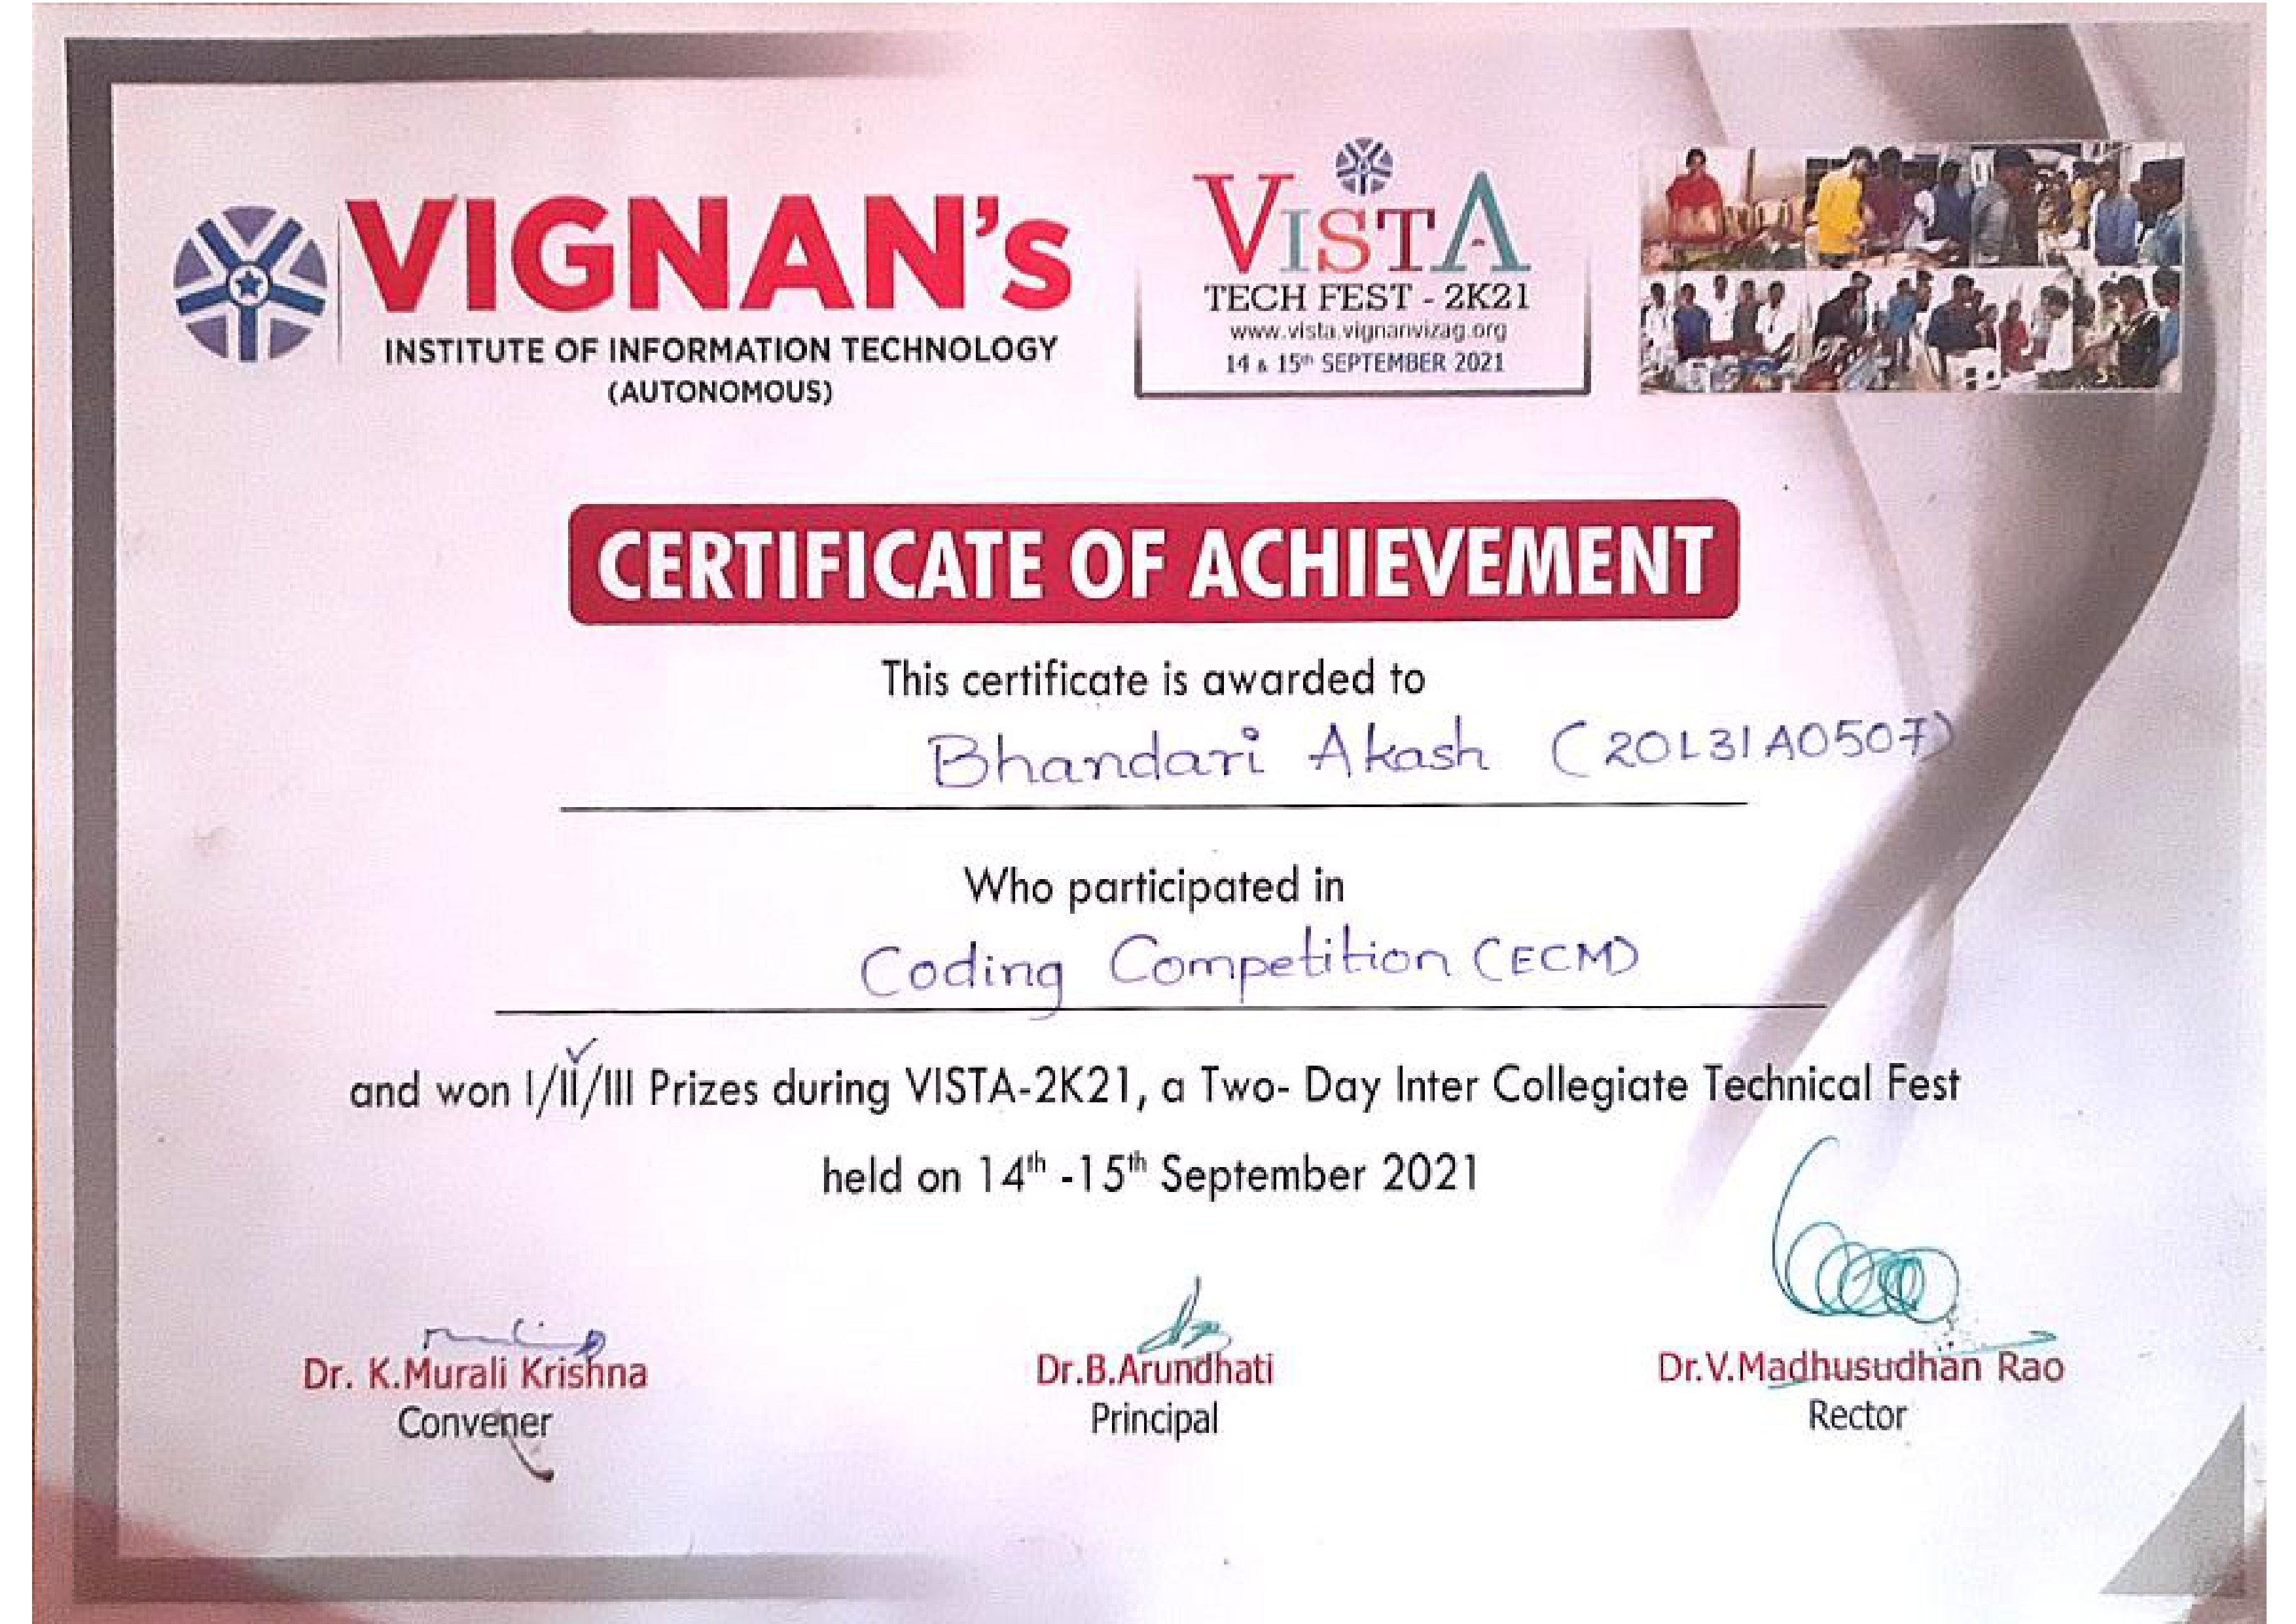 VIGNAN's
INSTITUTE OF INFORMATION TECHNOLOGY
(AUTONOMOUS)
VISTA
TECH FEST - 2K21
www.vista.vignanvizag.org
14 & 15th SEPTEMBER 2021
CERTIFICATE OF ACHIEVEMENT
This certificate is awarded to
Bhandari Akash (20L31A0507)
Who participated in
Coding Competition (ECM)
and won I/II/III Prizes during VISTA-2K21, a Two- Day Inter Collegiate Technical Fest
held on 14th -15th September 2021
Dr. K.Murali Krishna
Convener
Dr.B.Arundhati
Principal
Dr.V.Madhusudhan Rao
Rector